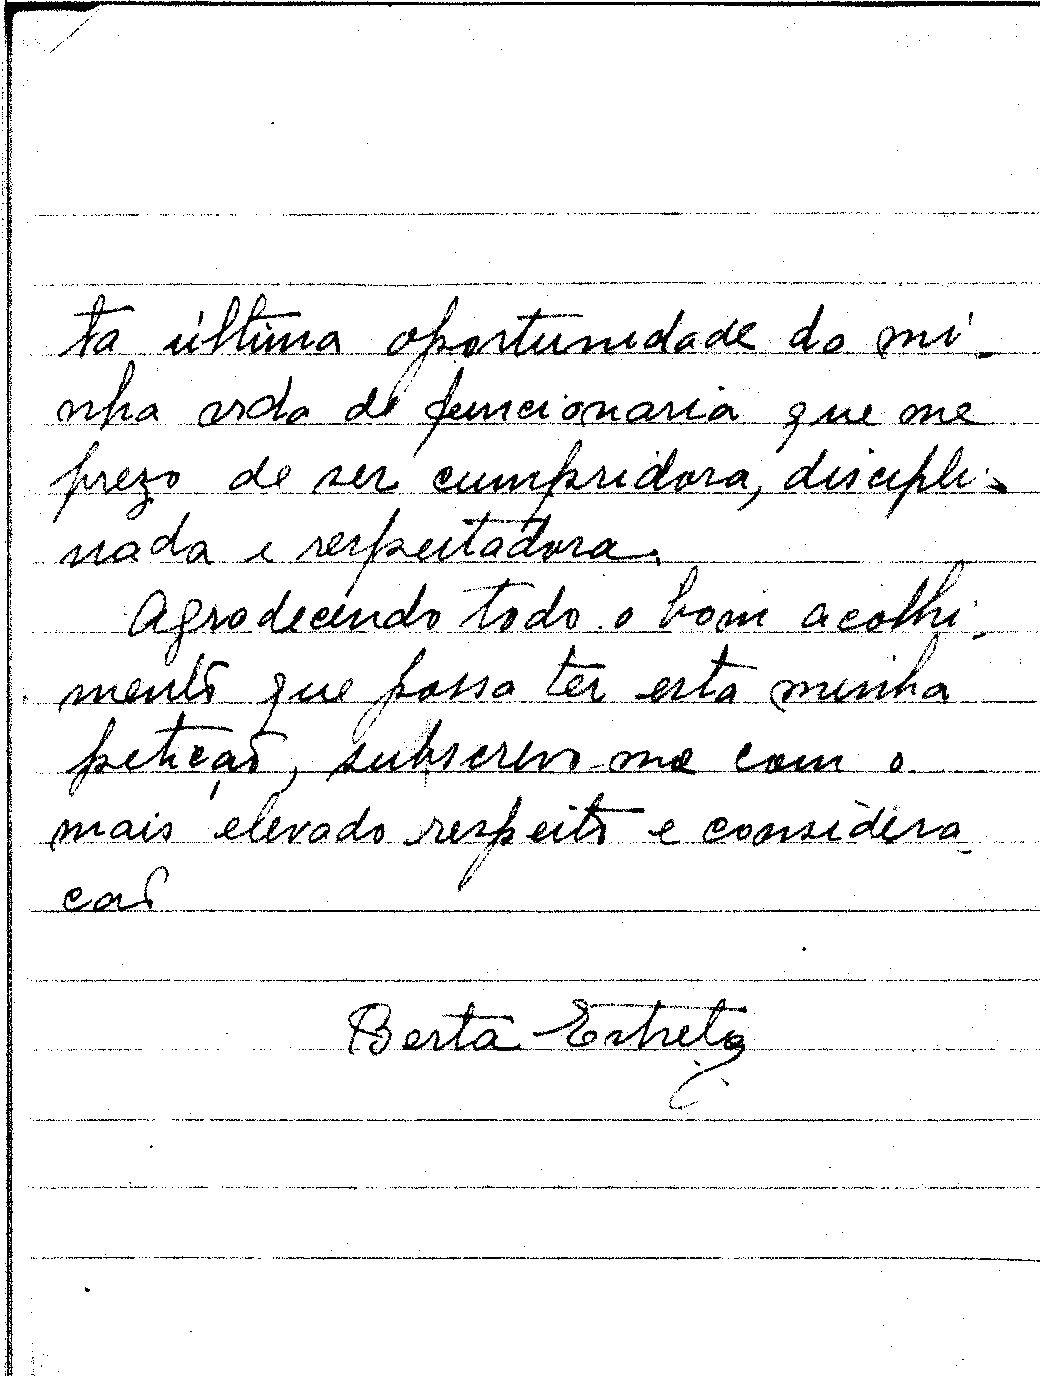 ta última oportunidade da mi-
nha vida de funcionaria que me
prezo de ser cumpridora, discipli-
nada e respeitadora.
Agradecendo todo o bom acolhi-
mento que possa ter esta minha
petição, subscrevo me com o
mais elevado respeito e considera-
cão
Berta Estrela